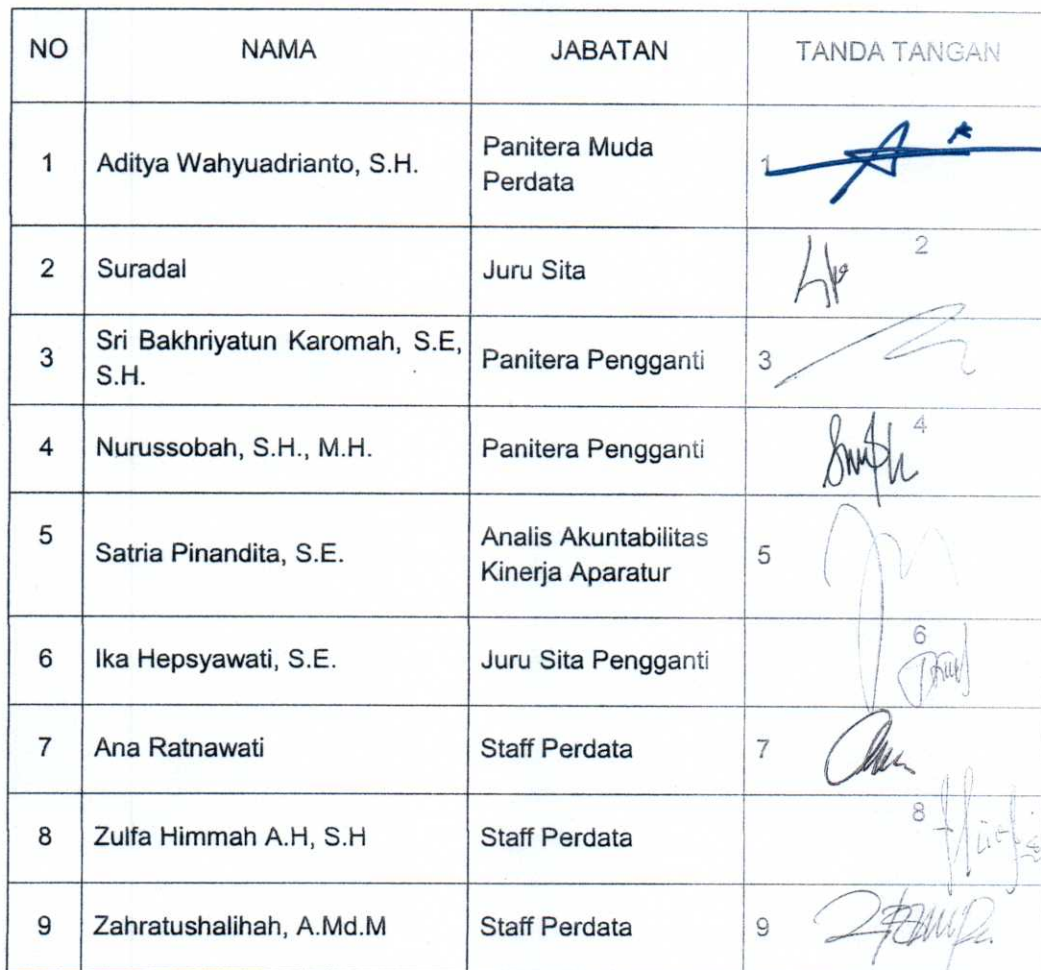 NO NAMA JABATAN TANDA TANGAN
1 Aditya Wahyuadrianto, S.H. Panitera Muda
Perdata 1
2 Suradal Juru Sita 2
3 Sri Bakhriyatun Karomah, S.E,
S.H. Panitera Pengganti 3
4 Nurussobah, S.H., M.H. Panitera Pengganti 4
5 Satria Pinandita, S.E. Analis Akuntabilitas
Kinerja Aparatur 5
6 Ika Hepsyawati, S.E. Juru Sita Pengganti 6
7 Ana Ratnawati Staff Perdata 7
8 Zulfa Himmah A.H, S.H Staff Perdata 8
9 Zahratushalihah, A.Md.M Staff Perdata 9